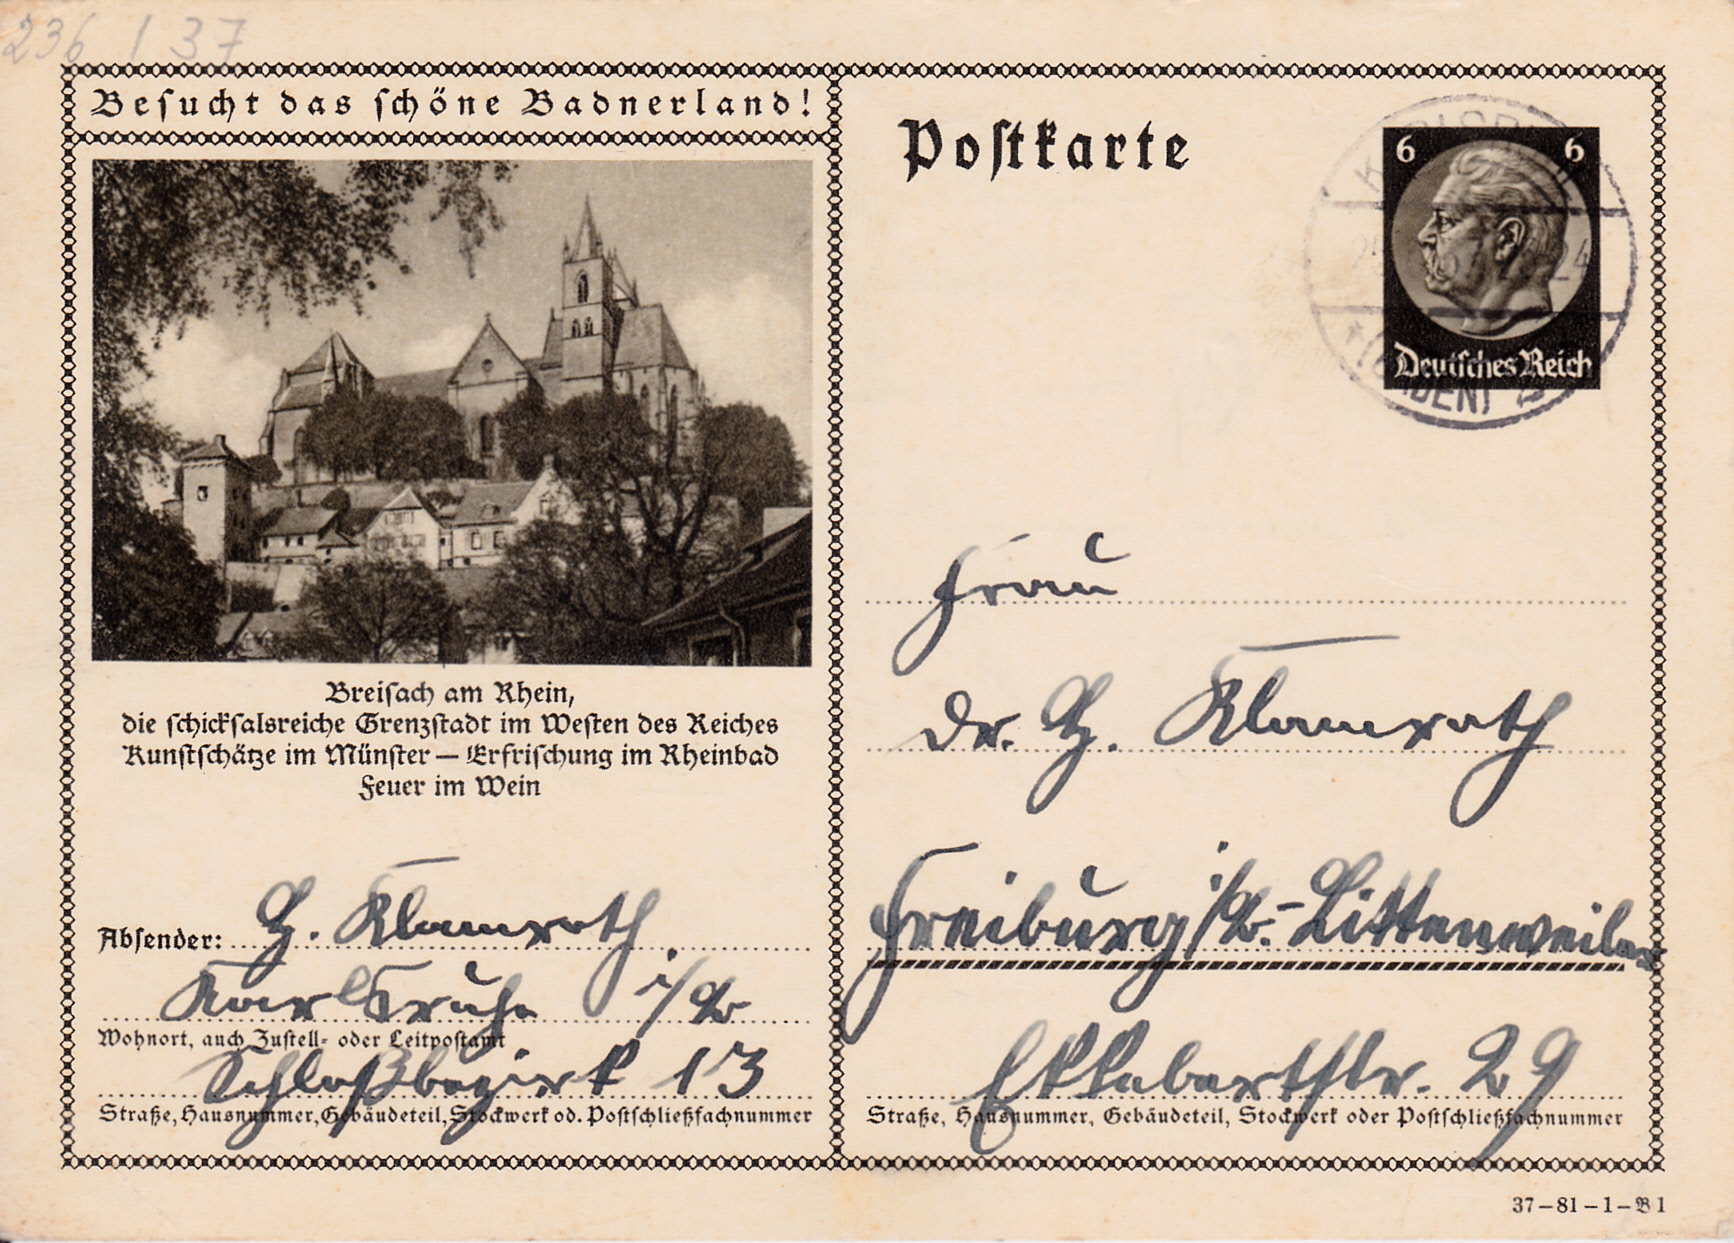 236 / 37
Besucht das schöne Badnerland!
Postkarte
6 6
Deutsches Reich
(BADEN)
Breisach am Rhein,
die schicksalsreiche Grenzstadt im Westen des Reiches
Kunstschätze im Münster — Erfrischung im Rheinbad
Feuer im Wein
Absender: H. Klamroth
Karlsruhe i/B
Wohnort, auch Zustell- oder Leitpostamt
Schloßbezirk 13
Straße, Hausnummer, Gebäudeteil, Stockwerk od. Postschließfachnummer
Frau
Dr. H. Klamroth
Freiburg i/B.-Littenweiler
Straße, Hausnummer, Gebäudeteil, Stockwerk oder Postschließfachnummer
37–81–1–B1